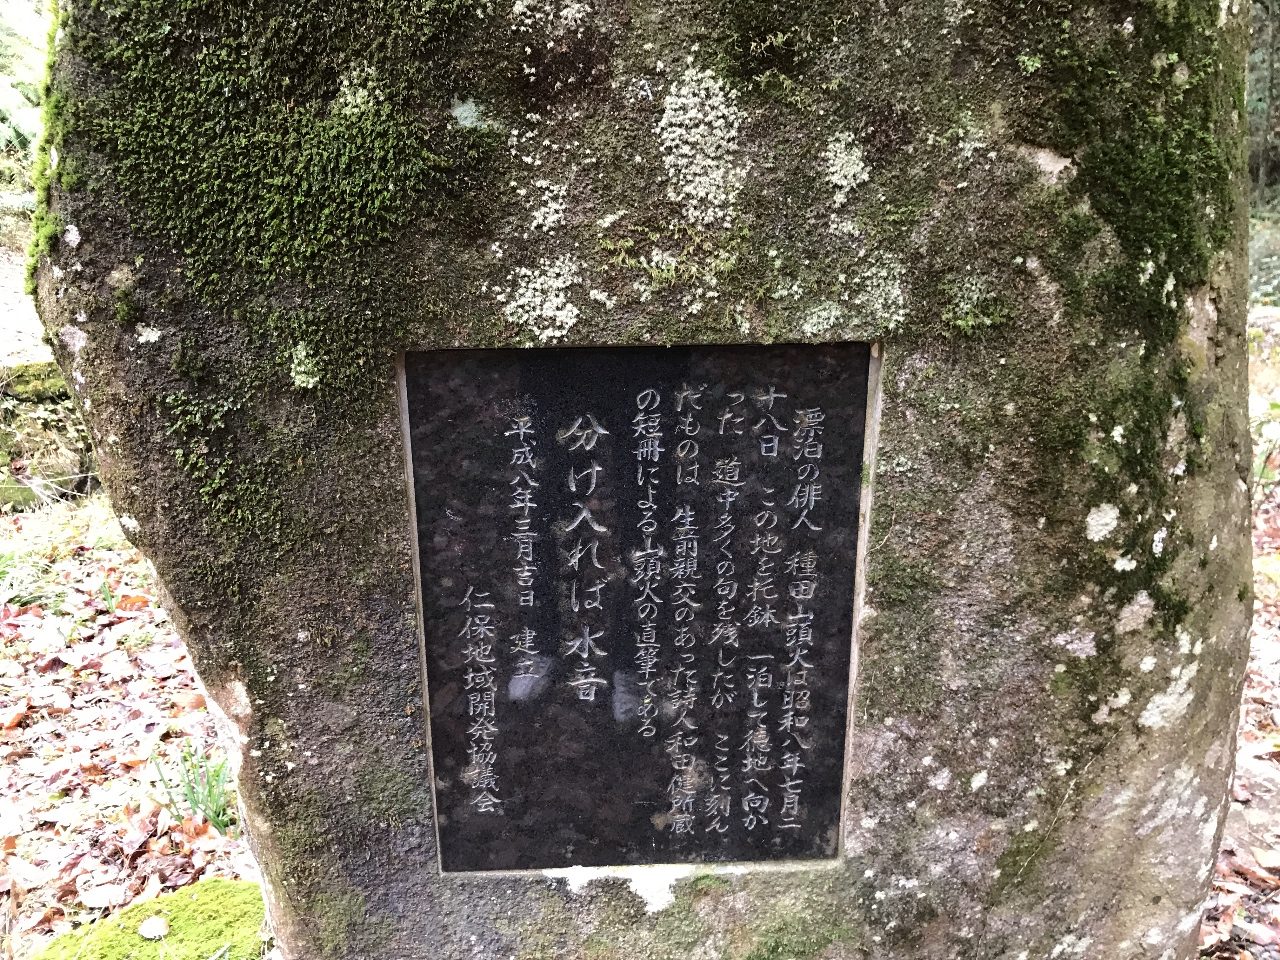 漂泊の俳人 種田山頭火は昭和八年七月二
十八日 この地を托鉢 一泊して徳地へ向か
った 道中多くの句を残したが ここに刻ん
だものは 生前親交のあった詩人和田健所蔵
の短冊による山頭火の直筆である
分け入れば水音
平成八年三月吉日 建立
仁保地域開発協議会